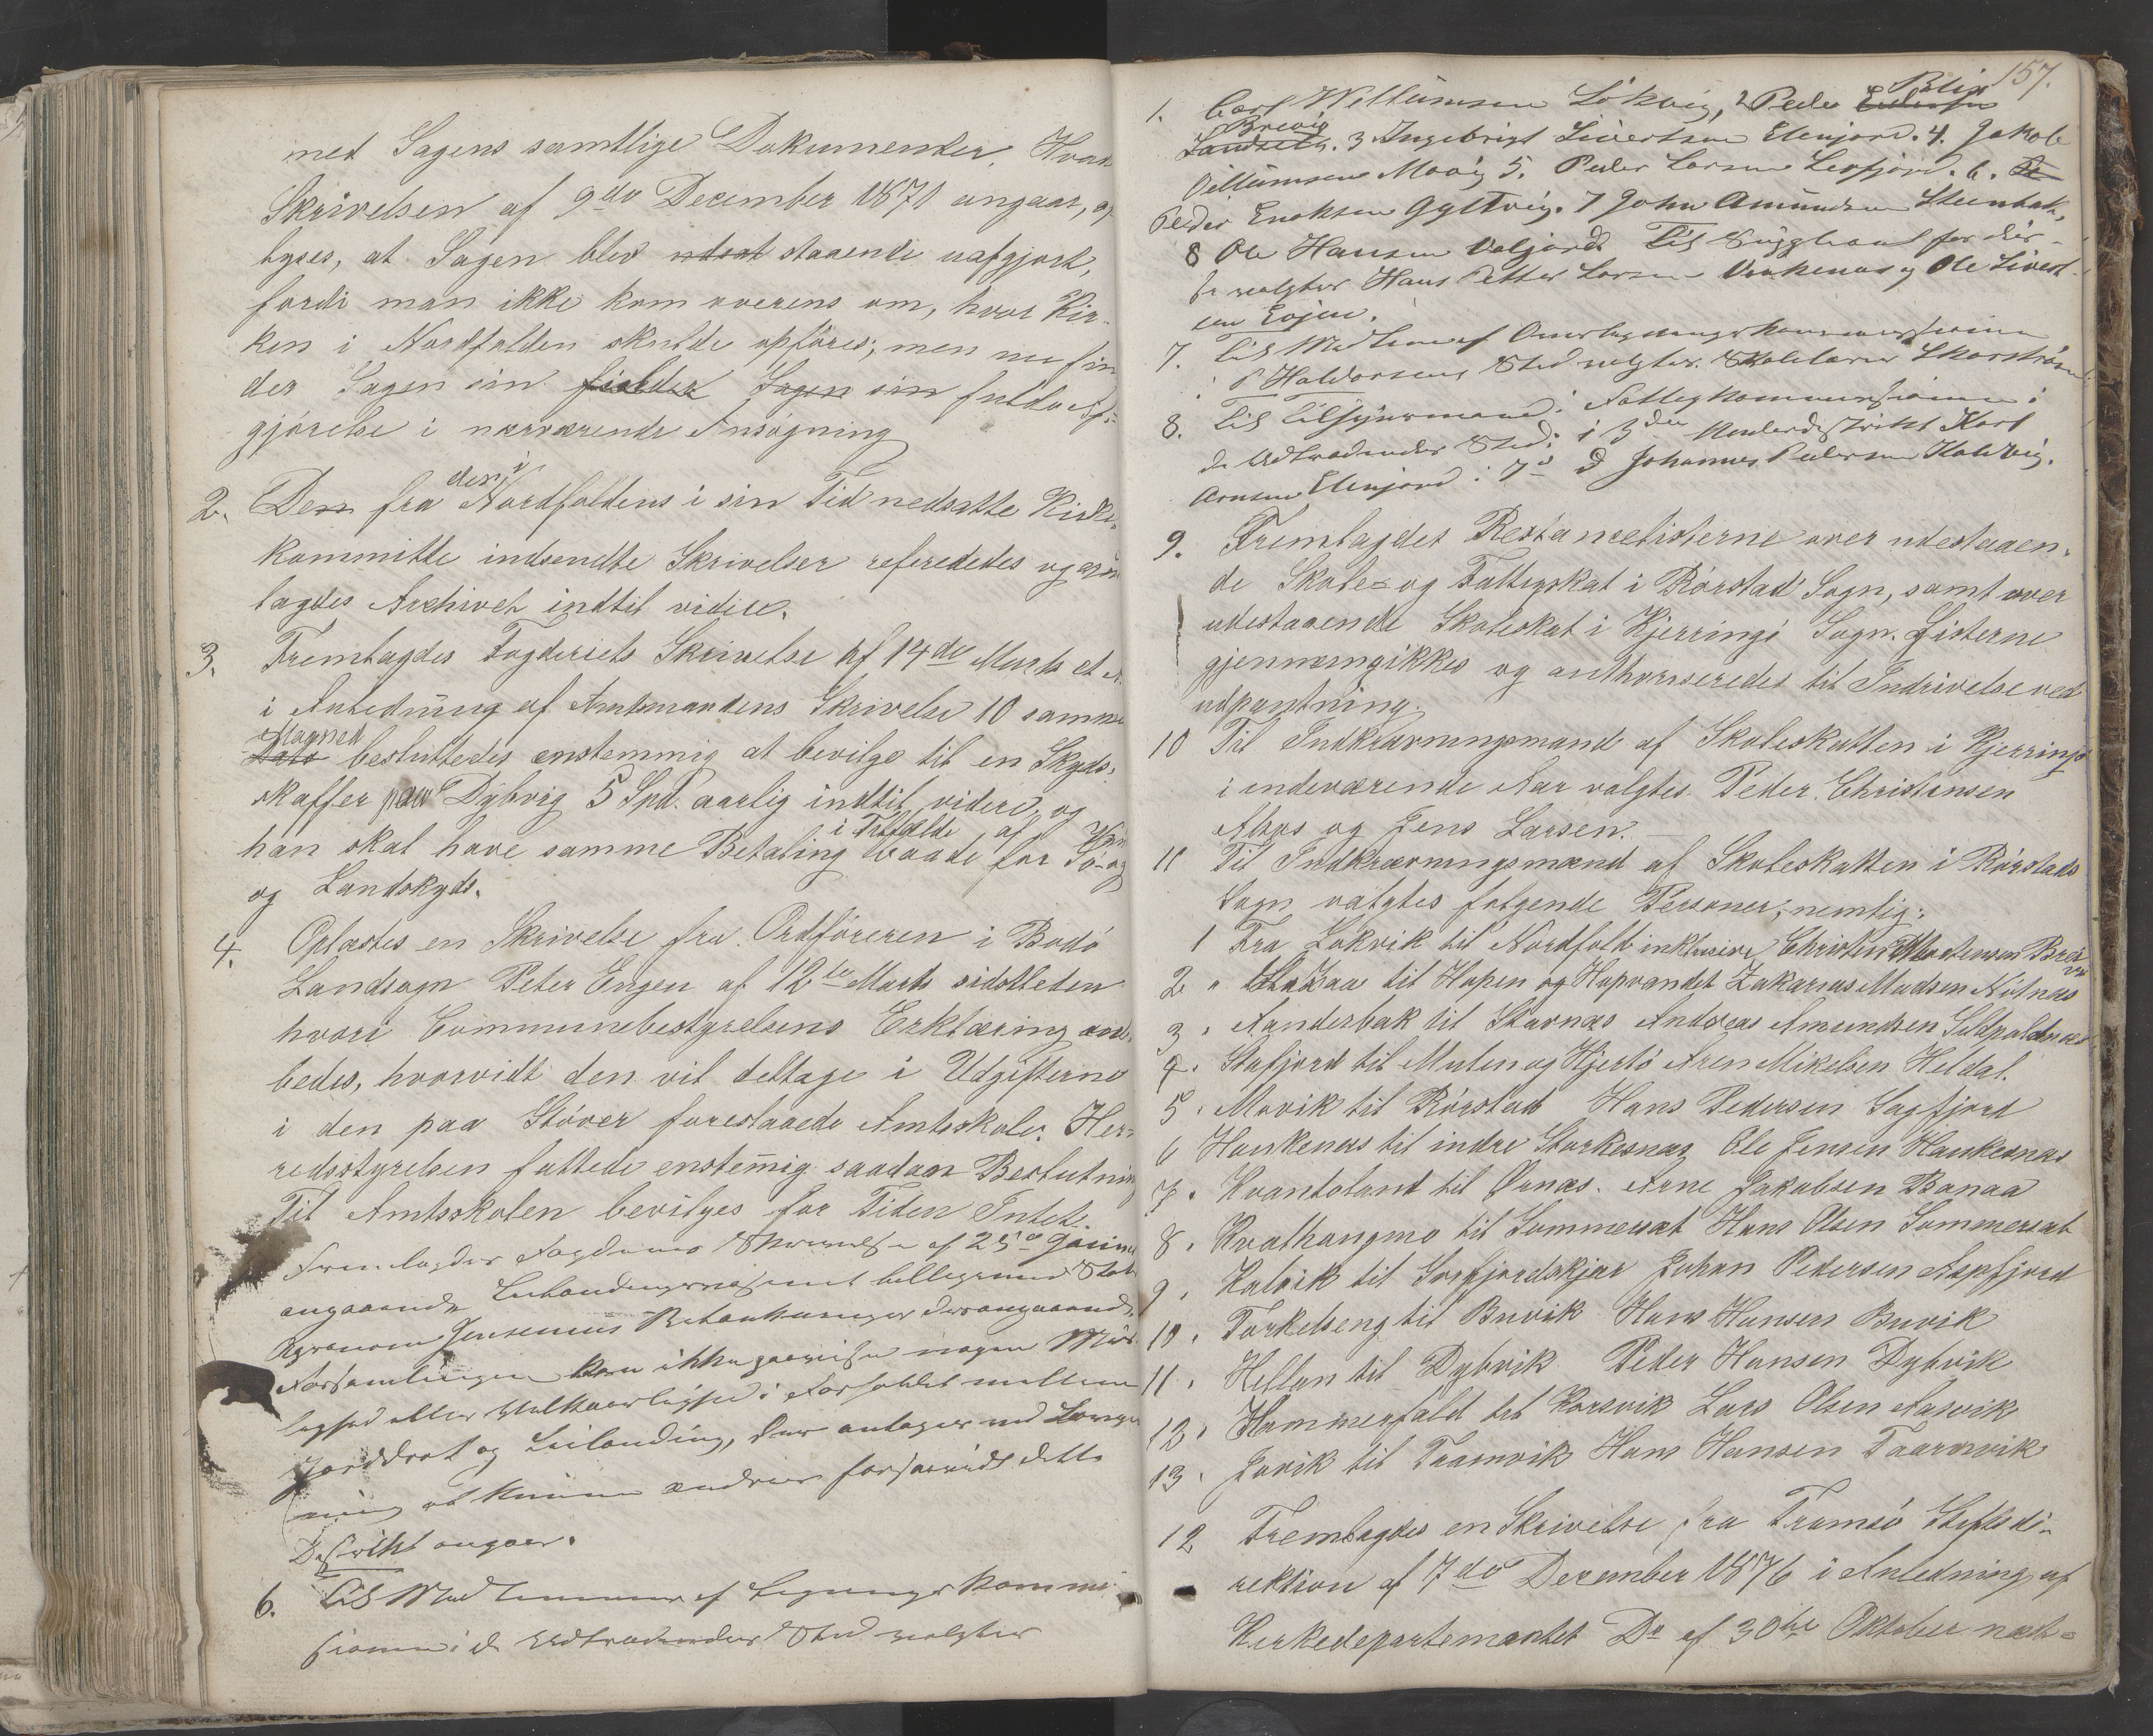 med Sagens samtlige Dokumenter. Hvad
Skrivelsen af 9de December 1871 angaar, op
lyses, at Sagen blev udsat staaende uafgjort,
fordi man ikke kom overens om, hvor Kir-
ken i Nordfolden skulde opføres; men nu fin
der Sagen sin fulde Sagen sin fulde Af-
gjørelse i nærværende Ansøgning
2. Den fra den i Nordfoldens i sin Tid nedsatte Kirke-
kommitte indsendte Skrivelser refereredes og
lagdes Archivet indtil videre.
3. Fremlagdes Fogderiets Skrivelse af 14de Marts
i Anledning af Amtmandens Skrivelse 10 samme
Maaned
Dato besluttedes enstemmig at bevilge til en Skyds-
skaffer paa Dybvig 5 Spd. aarlig indtil videre, og
i Tilfælde af
han skal have samme Betaling baade for Sø- og
og Landskyds.
4. Oplæstes en Skrivelse fra Ordføreren i Bodø
Landsogn Peter Engen af 12te Marts sidstleden
hvori Communebestyrelsens Erklæring
bedes, hvorvidt den vil deltage i Udgifterne
i den paa Støver forestaaede Amtsskole. Her-
redsstyrelsen fattede enstemig saadan Beslutning
Til Amtsskolen bevilges for Tiden Intet.
Fremlagdes Fogdens Skrivelse af 25de
angaaende
Agronom Jensenius Betænkninger desangaaende.
Forsamlingen kan ikke paavise nogen
i Forholdet mellem
Jorddrot og Leilænding, der antages ved Lovgiv
ning at kunne ændres forsaavidt dette
Distrikt angaar.
6. Til Medlemmer af Lignings Kommi
sionen i de Udtrædendes Sted valgtes
157.
1. Carl Willumsen Løkvig, 2 Peder Blix
Brevig
Landseth. 3 Ingebrigt Sivertsen Elvnjord. 4. Jakob
Villumsen Movig 5. Peder Larsen Leifjord. 6.
Peder Enoksen Gyltvig. 7 John Amundsen Steenbak,
8 Ole Hansen Valjord. Til Suppleant for dis-
se valgtes Hans Petter Larsen og Ole Sivert-
sen Eojen.
7. Til Medlem af Overligningskommissionen
i P Haldorsens Sted valgtes Skolelærer Skarstrøm
8. Til Tilsynsmænd i Fattigkommissionen i
de Udtrædendes Sted: i 3die Underdistrikt Karl
Arnsen Elvnjord i 7de D Johannes Pedersen Kalvvig.
9. Fremlagdes Restancelisterne over udestaaen-
de Skole- og Fattigskat i Rørstad Sogn, samt over
udestaaende Skoleskat i Kjerringø Sogn. Listerne
gjennemgikkes og authoriseredes til Inddrivelse ved
udpantning.
10 Til Indkrævningsmand af Skoleskatten i Kjerringø
i indeværende Aar valgtes Peder Christensen
Alsos og Jens Larsen.
11 Til Indkrævningsmænd af Skoleskatten i Rørstads
Sogn valgtes følgende Personer, nemlig:
1 Fra Løkvik til Nordfold inklusive, Christen Mortensen
2 " til Hopen og Hopvandet Zakarias Madsen
3 " Aanderbak til Starnæs Andreas Amundsen
4 " Stafjord til Mulen og Hjertø Aren Mikelsen Heldal.
5 " Movik til Rørstad Hans Pedersen Sagfjord
6 Haukenæs til indre Storkesnæs Ole Jensen Haukesnæs
7 " Kvantoland til Ørnæs. Arne Jakobsen Bonaa
8 " til Sommerset Hans Olsen Sommerset
9 " Kalvik til Johan Pedersen Aspfjord
10 " Torkelseng til Buvik Hans Hansen Buvik
11 " Hellan til Dybvik Peder Hansen Dybvik
12 " Hammerfald til Korsvik Lars Olsen Aasvik
13 " Jovik til Taarnvik Hans Hansen Taarnvik
12 Fremlagdes en Skrivelse fra Tromsø Stiftsdi-
rektion af 7de December 1876 i Anledning af
Kirkedepartementet Do af 30te Oktober næst-